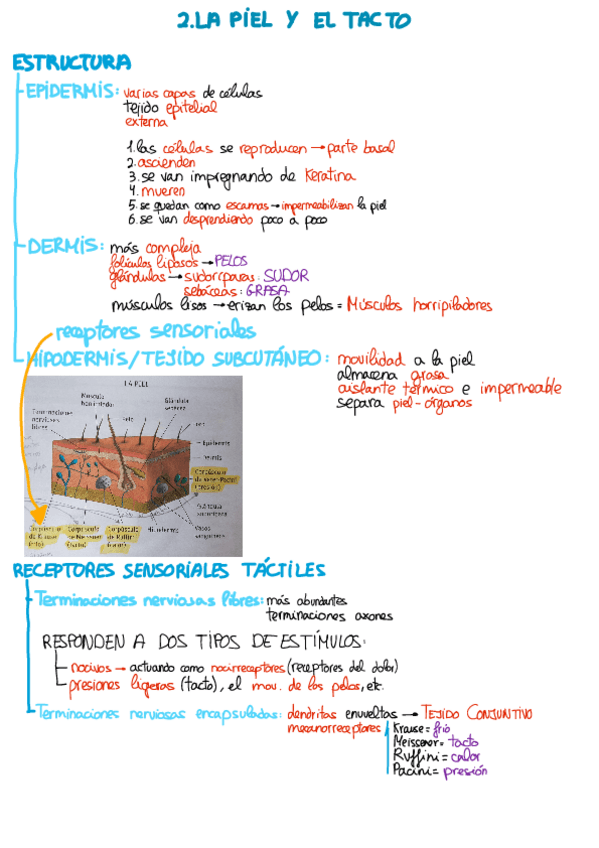 2.LA PIEL Y EL TACTO
ESTRUCTURA
EPIDERMIS: varias capas de células
tejido epitelial
externa
1.las células se reproducen → parte basal
2.ascienden
3.se van impregnando de Keratina
4.mueren
5.se quedan como escamas → impermeabilizan la piel
6.se van desprendiendo poco a poco
DERMIS: más compleja
folículos liposos → PELOS
glándulas → sudoríparas: SUDOR
sebáceas: GRASA
músculos lisos → erizan los pelos = Músculos horripiladores
receptores sensoriales
HIPODERMIS/TEJIDO SUBCUTÁNEO: movilidad a la piel
almacena grasa
aislante térmico e impermeable
separa piel-órganos
LA PIEL
Músculo
Glándula
sebácea
Terminaciones
nerviosas
libres
Pelo
Epidermis
Dermis
Corpúsculo
(presión)
Corpúsculo
de Krause
(frío)
Corpúsculo
de Meissner
(tacto)
Corpúsculo
de Ruffini
(calor)
Hipodermis
Vasos
sanguíneos
RECEPTORES SENSORIALES TÁCTILES
Terminaciones nerviosas libres: más abundantes
terminaciones axones
RESPONDEN A DOS TIPOS DE ESTÍMULOS:
nocivos → actuando como nocirreceptores (receptores del dolor)
presiones ligeras (tacto), el mov. de los pelos, etc.
Terminaciones nerviosas encapsuladas: dendritas envueltas → TEJIDO CONJUNTIVO
mecanorreceptores
Krause = frío
Meissner = tacto
Ruffini = calor
Pacini = presión